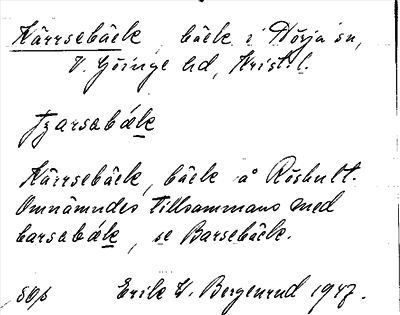 Kärrsebäck, bäck i Hörja sn,
V. Göinge hd, Krist. l.
tʒarsabǽk
Kärrsebäck, bäck å Röshult.
Omnämndes tillsammans med
barsabǽk, se Barsebäck.
Erik W. Bergenrud 1947.